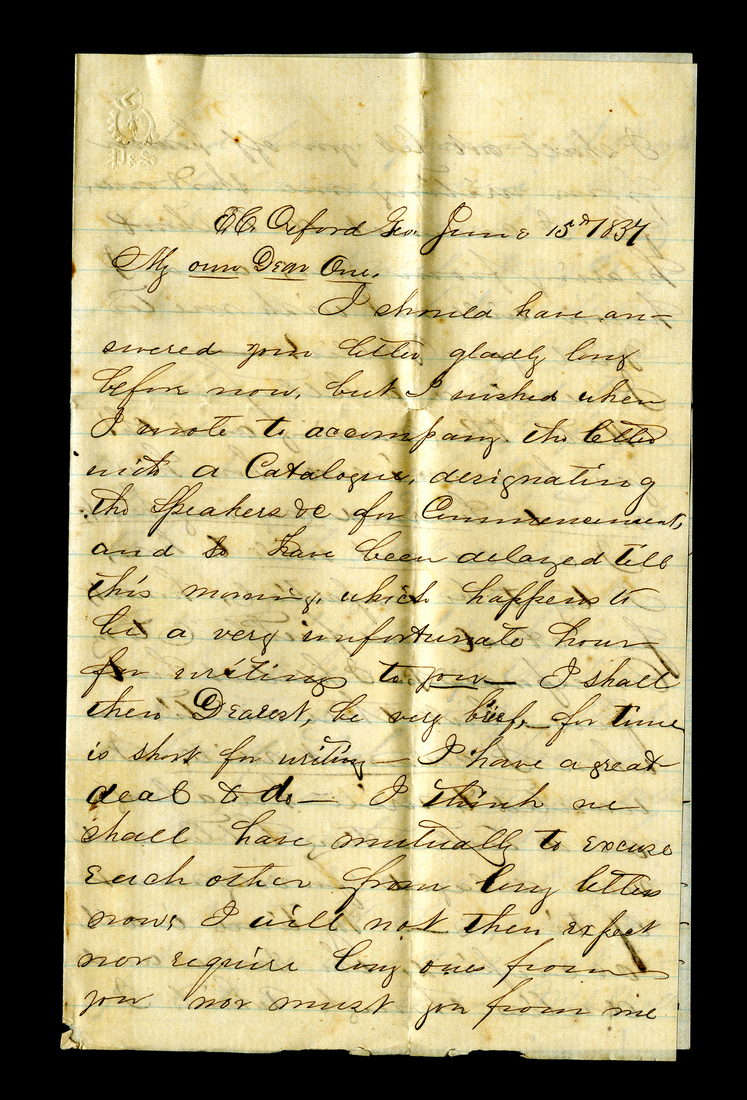 P&S
E.C. Oxford Geo. June 15th 1857
My own Dear One,
I should have an-
swered your letter gladly long
before now, but I wished when
I wrote to accompany the letter
with a Catalogue, designating
the Speakers &c for Commencement,
and so have been delayed till
this morning, which happens to
be a very unfortunate hour
for writing to you— I shall
then Dearest, be very brief, for time
is short for writing— I have a great
deal to do— I think we
shall have mutually to excuse
each other from long letters
now; I will not then expect
nor require long ones from
you nor must you from me